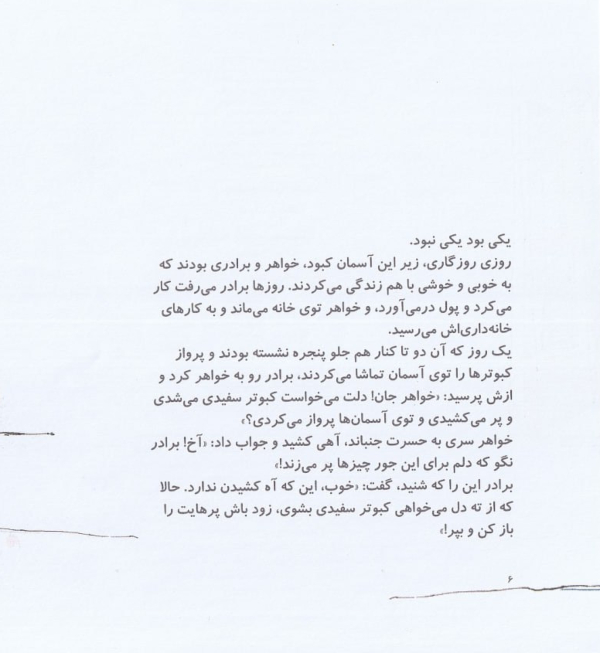 یکی بود یکی نبود.
روزی روزگاری، زیر این آسمان کبود، خواهر و برادری بودند که
به خوبی و خوشی با هم زندگی می‌کردند. روزها برادر می‌رفت کار
می‌کرد و پول درمی‌آورد، و خواهر توی خانه می‌ماند و به کارهای
خانه‌داری‌اش می‌رسید.
یک روز که آن دو تا کنار هم جلو پنجره نشسته بودند و پرواز
کبوترها را توی آسمان تماشا می‌کردند، برادر رو به خواهر کرد و
ازش پرسید: «خواهر جان! دلت می‌خواست کبوتر سفیدی می‌شدی
و پر می‌کشیدی و توی آسمان‌ها پرواز می‌کردی؟»
خواهر سری به حسرت جنباند، آهی کشید و جواب داد: «آخ! برادر
نگو که دلم برای این جور چیزها پر می‌زند!»
برادر این را که شنید، گفت: «خوب، این که آه کشیدن ندارد. حالا
که از ته دل می‌خواهی کبوتر سفیدی بشوی، زود باش پرهایت را
باز کن و بپر!»
۶